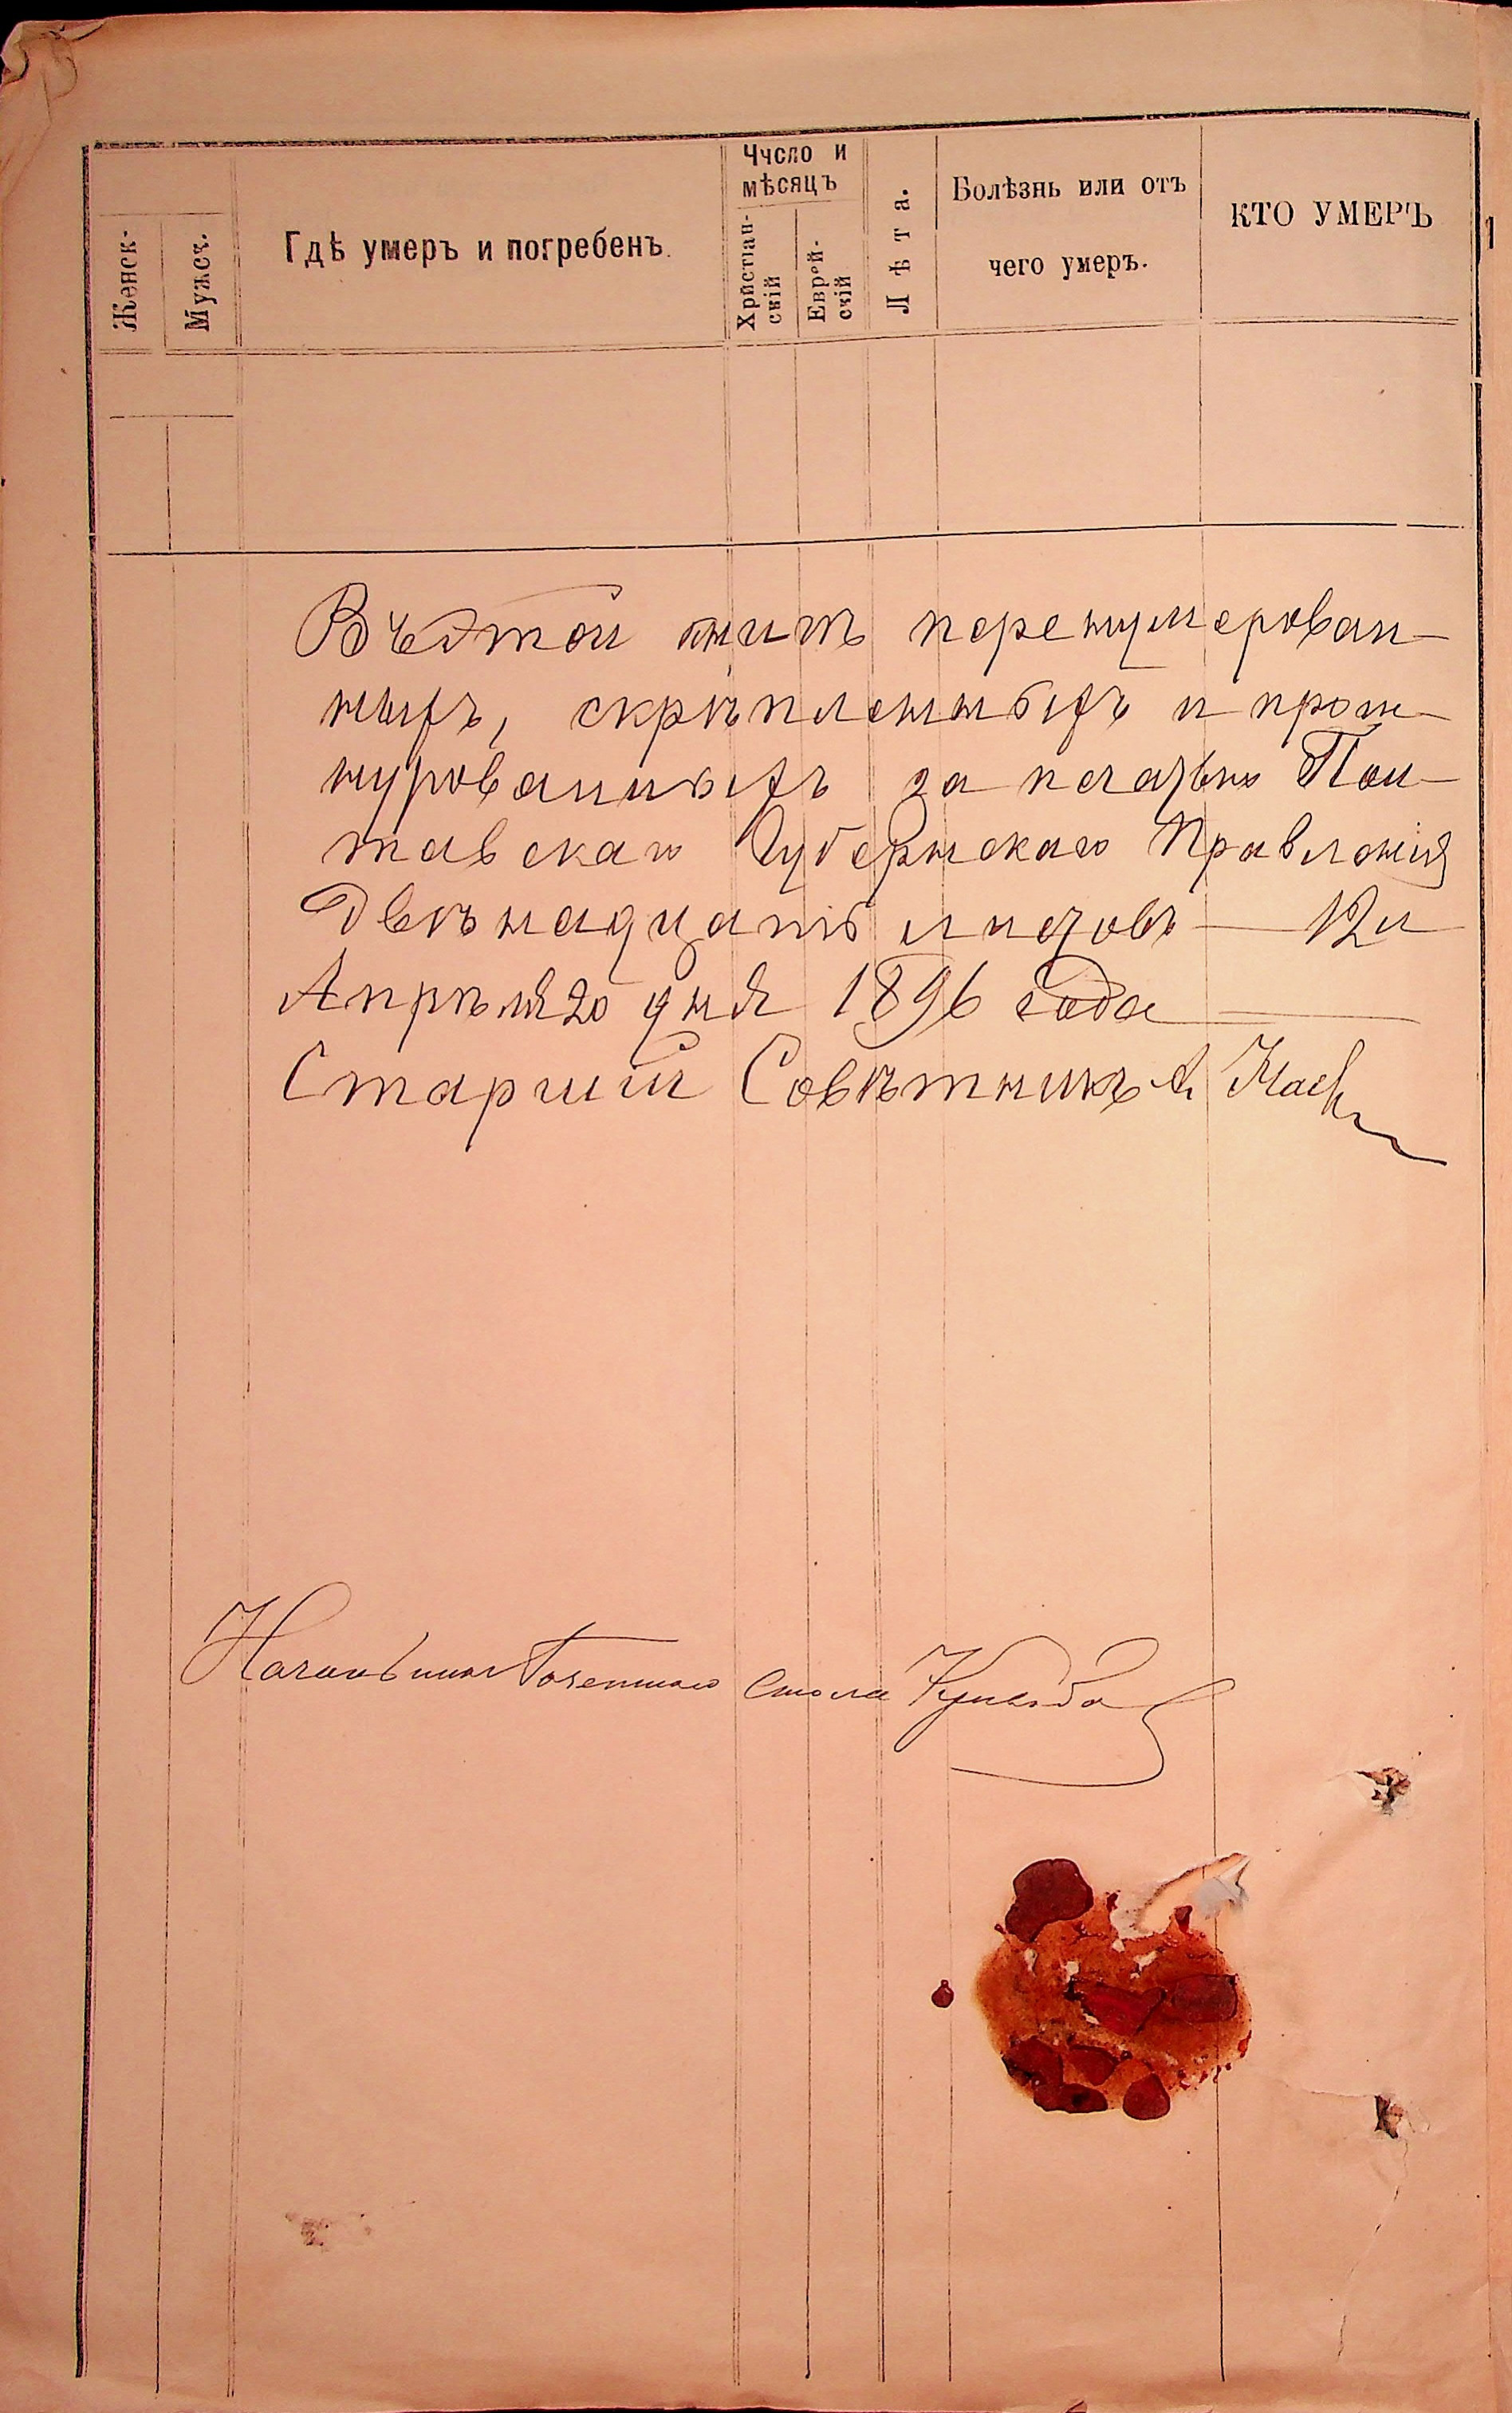 Число и
мѣсяцъ
Женск-
Мужск.
Гдѣ умеръ и погребенъ.
Христіан-
скій
Еврей-
скій
Лѣта.
Болѣзнь или отъ
чего умеръ.
КТО УМЕРЪ
Въ этой книгѣ перенумерован-
ныхъ, скрѣпленныхъ и прош-
нурованныхъ за печатью Пол-
тавскаго Губернскаго Правленія
двѣнадцать листовъ — 12 л
Апрѣля 20 дня 1896 года
Старшій Совѣтникъ А.
Начальникъ Газетнаго Стола